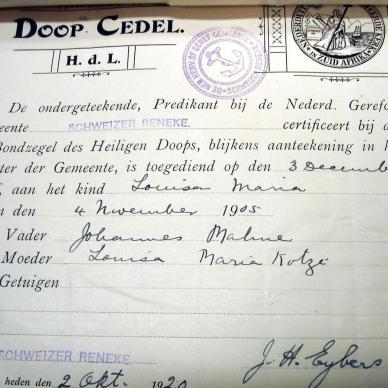 DOOP CEDEL.
H. d. L.
DE NED. HERV. OF GEREF. GEMEENTE
SCHWEIZER
IN ZUID AFRIKA
De ondergeteekende, Predikant bij de Nederd. Gerefo
eente SCHWEIZER RENEKE. certificeert bij d
Bondzegel des Heiligen Doops, blijkens aanteekening in h
ter der Gemeente, is toegediend op den 3 Decemb
, aan het kind Louisa Maria
n den 4 November 1905
Vader Johannes
Moeder Louisa Maria Kotze
Getuigen
SCHWEIZER RENEKE. J. H. Eybers
heden 2 Okt. 1920